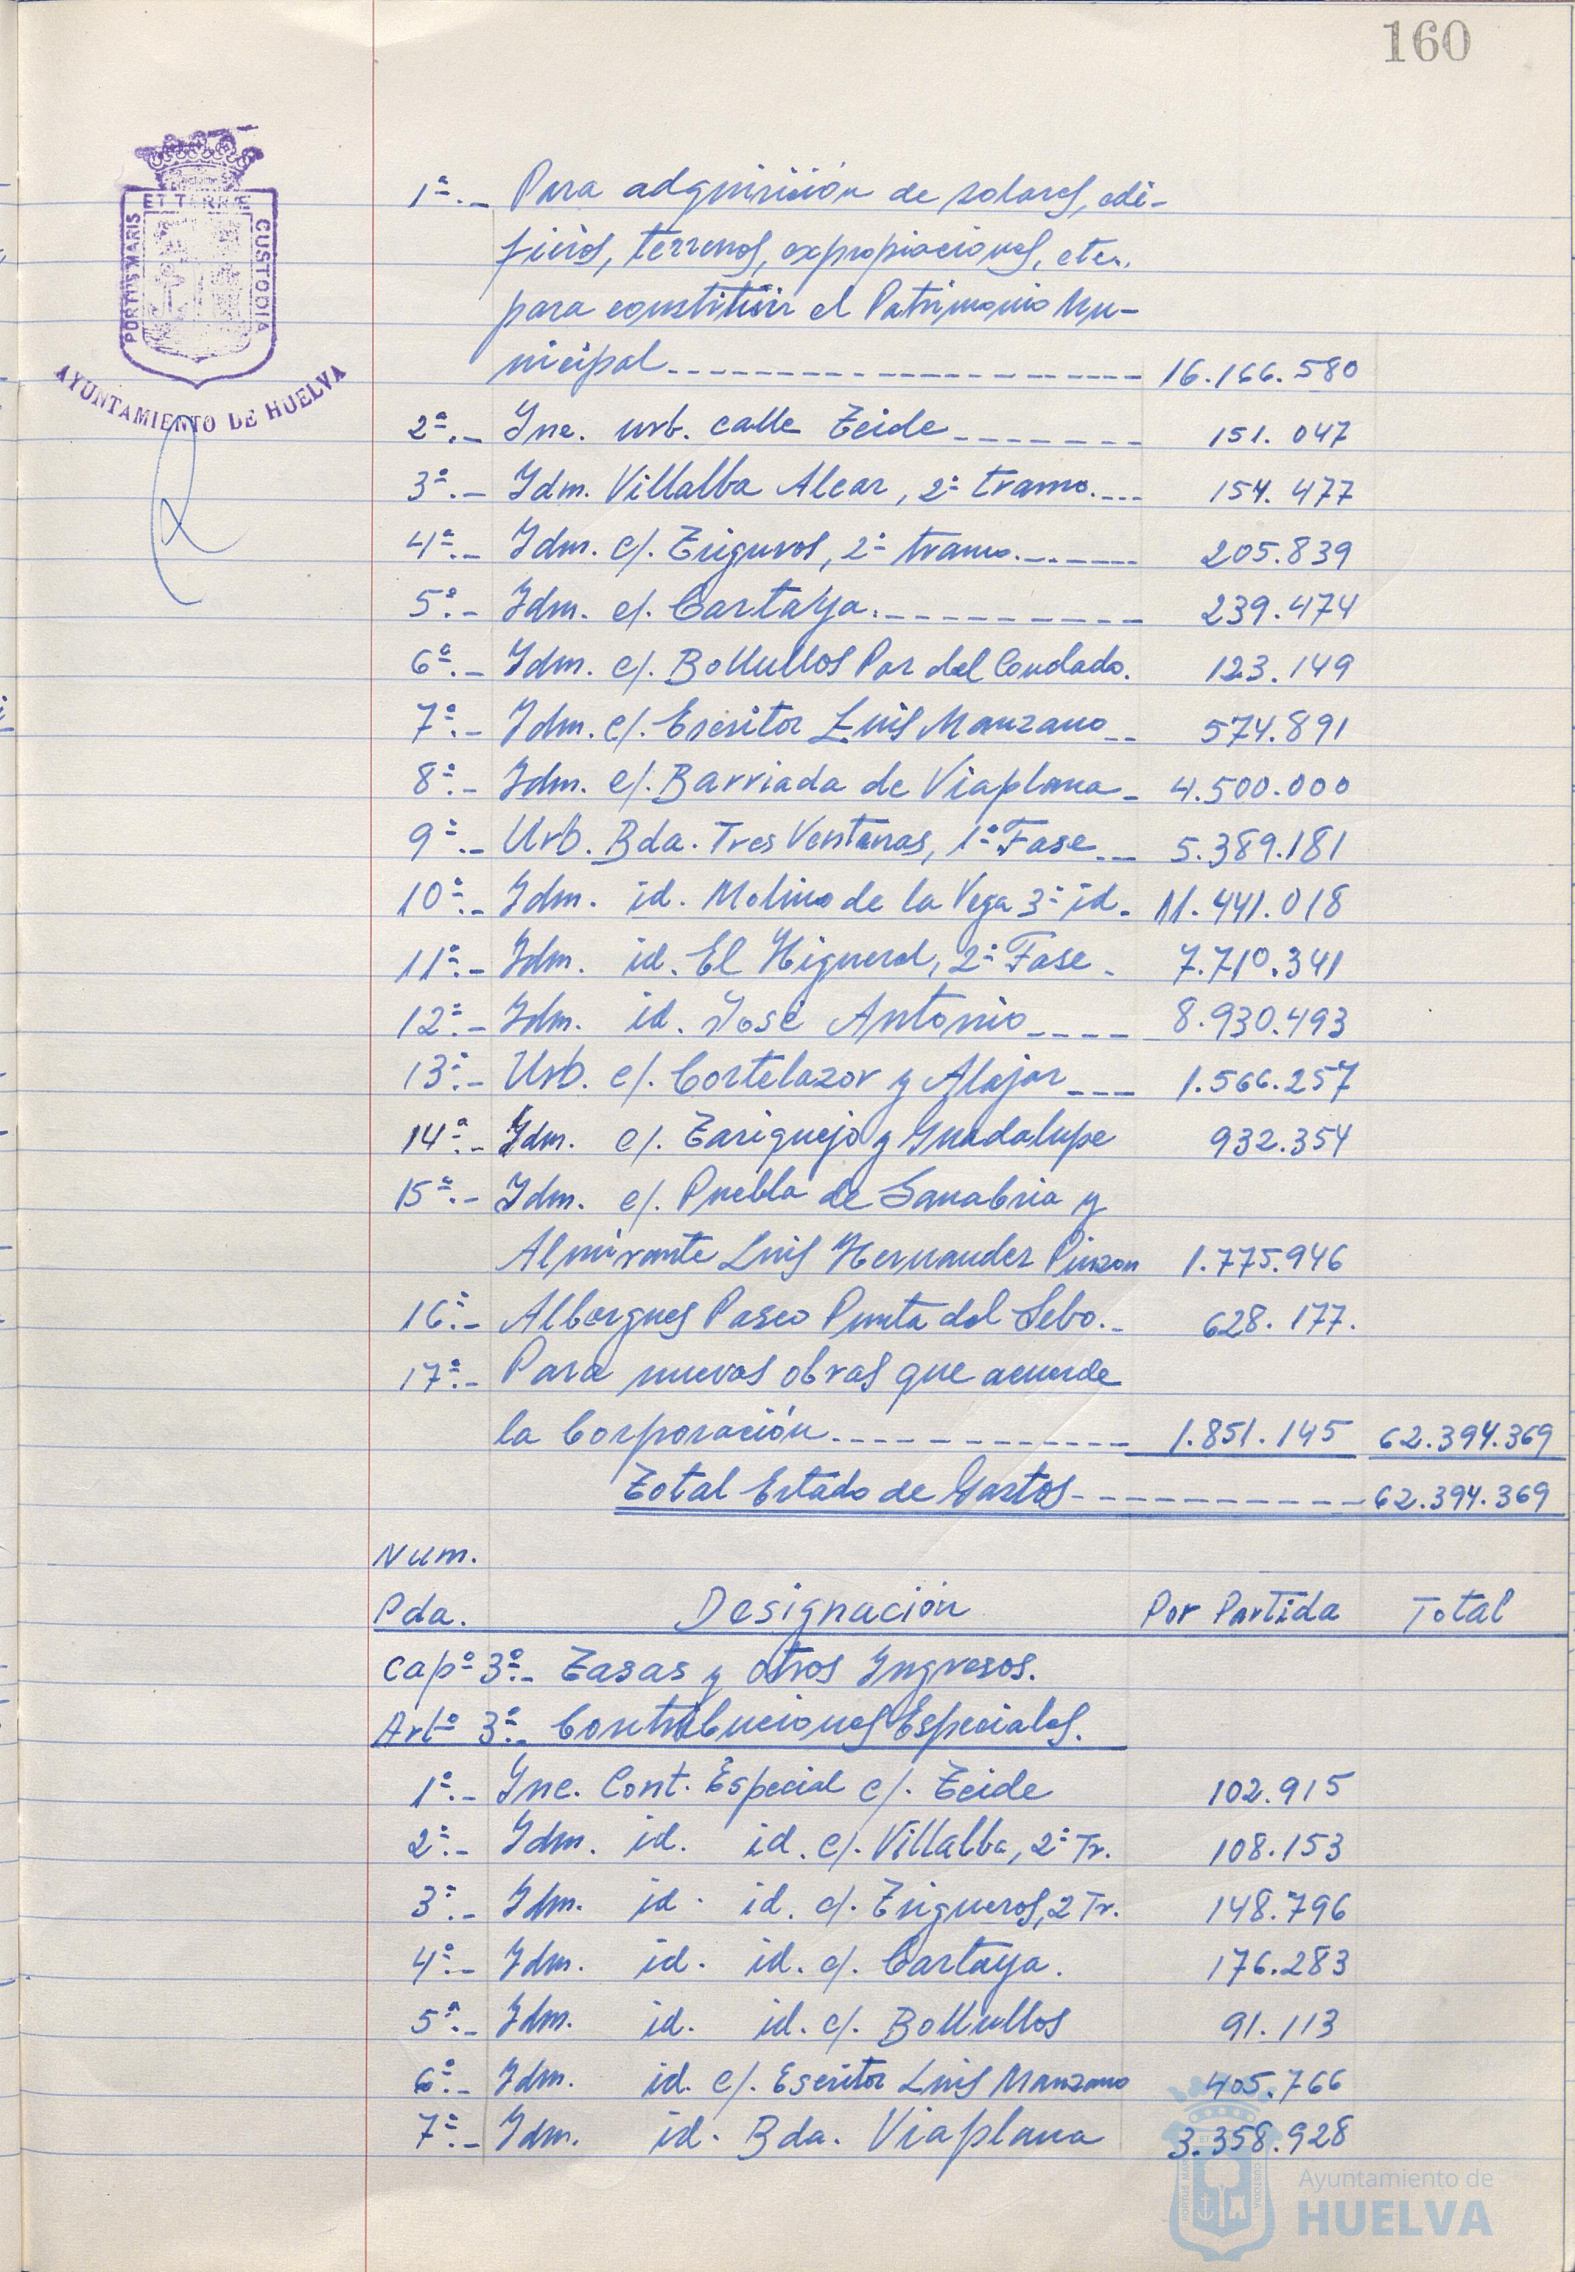 160
ET TERRÆ
PORTUS MARIS
CUSTODIA
AYUNTAMIENTO DE HUELVA
1ª.- Para adquisición de solares, edi-
ficios, terrenos, expropiaciones, etc..
para constituir el Patrimonio Mu-
nicipal 16.166.580
2ª.- Inc. urb. calle Teide 151.047
3ª.- Idm. Villalba Alcar, 2º tramo. 154.477
4ª.- Idm. c/. Trigueros, 2º tramo. 205.839
5ª.- Idm. c/. Cartaya. 239.474
6ª.- Idm. c/. Bollullos Par del Condado. 123.149
7ª.- Idm. c/. Escritor Luis Manzano 574.891
8ª.- Idm. c/. Barriada de Viaplana 4.500.000
9ª.- Urb. Bda. Tres Ventanas, 1ª Fase 5.389.181
10ª.- Idm. id. Molino de la Vega 3ª id. 11.441.018
11ª.- Idm. id. El Higueral, 2ª Fase 7.710.341
12ª.- Idm. id. José Antonio 8.930.493
13ª.- Urb. c/. Cortelazor y Alajar 1.566.257
14ª.- Idm. c/. Tariquejo y Guadalupe 932.354
15ª.- Idm. c/. Puebla de Sanabria y
Almirante Luis Hernandez Pinzon 1.775.946
16ª.- Albergues Paseo Punta del Sebo. 628.177.
17ª.- Para nuevas obras que acuerde
la Corporación 1.851.145 62.394.369
Total Estado de Gastos 62.394.369
Num.
Pda. Designación Por Partida Total
Capº 3º.- Tasas y otros Ingresos.
Artº 3º.- Contribuciones Especiales.
1ª.- Inc. Cont. Especial c/. Teide 102.915
2ª.- Idm. id. id. c/. Villalba, 2º Tr. 108.153
3ª.- Idm. id. id. c/. Trigueros, 2 Tr. 148.796
4ª.- Idm. id. id. c/. Cartaya. 176.283
5ª.- Idm. id. id. c/. Bollullos 91.113
6ª.- Idm. id. c/. Escritor Luis Manzano 405.766
7ª.- Idm. id. Bda. Viaplana 3.358.928
Ayuntamiento de
HUELVA